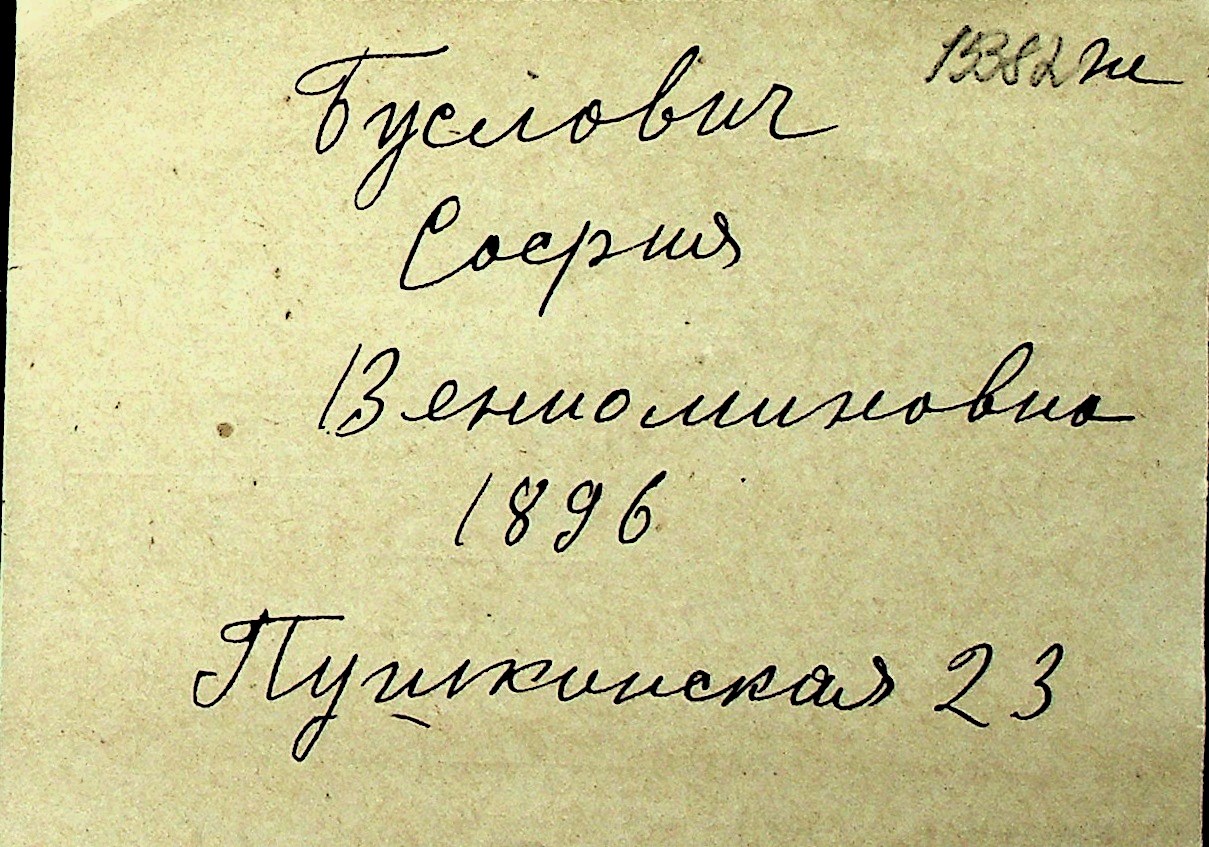 1382 ж
Буслович
София
Вениоминовна
1896
Пушкинская 23